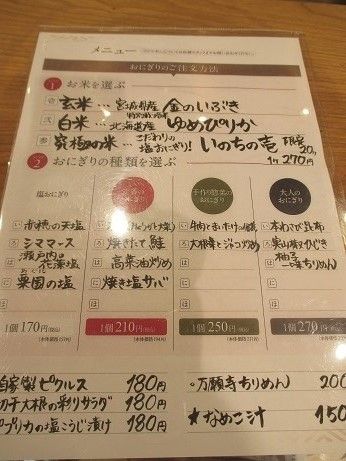 メニュー
おにぎりのご注文方法
1 お米を選ぶ
壱 玄米…宮城県産 金のいぶき
弐 白米…北海道産 ゆめぴりか
参 究極の米…こだわりの塩おにぎり! いのちの壱 限定20ヶ
1ヶ270円
2 おにぎりの種類を選ぶ
塩おにぎり
い 赤穂の天塩
ろ シママース
は 瀬戸内の花藻塩
に 粟国の塩
ほ
1個170円(税込)
定番の
おにぎり
ろ 焼きたて鮭
は 高菜油炒め
に 焼き塩サバ
ほ
1個210円(税込)
手作り惣菜の
おにぎり
ろ 大根葉とジャコ炒め
は
に
ほ
1個250円(税込)
大人の
おにぎり
い 本わさび昆布
ろ 実山椒
は 柚子一味ちりめん
に
ほ
1個270円(税込)
自家製ピクルス 180円
切干大根の彩りサラダ 180円
パプリカの塩こうじ漬け 180円
万願寺ちりめん 200
★なめこ汁 150